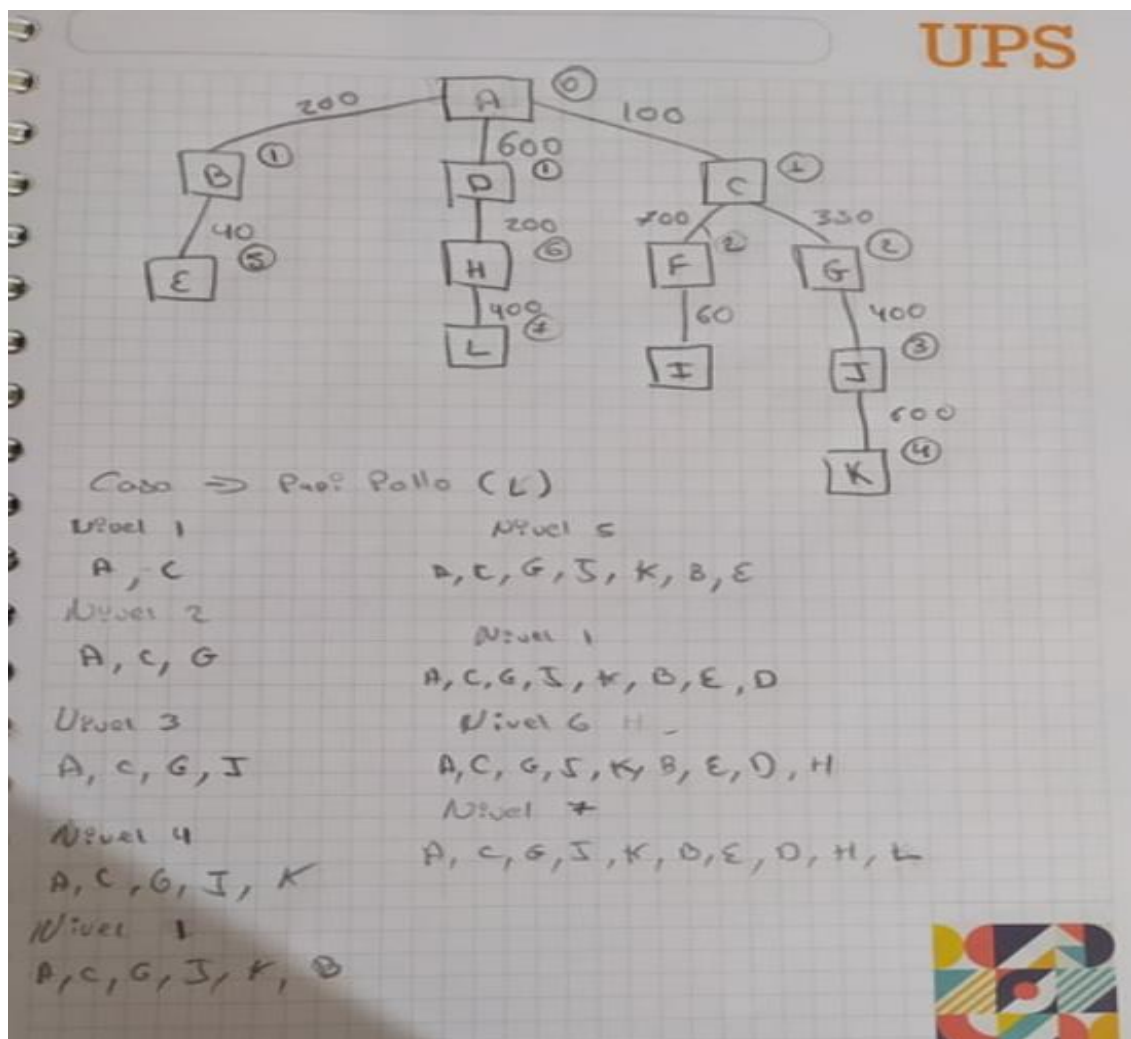 UPS
A 0
200 100
600
B 1 D 1 C 1
40 200 700 330
E 5 H 6 F 2 G 2
400 60 400
L 7 I J 3
600
K 4
Caso => Papi Pollo (L)
Nivel 1
A, C
Nivel 2
A, C, G
Nivel 3
A, C, G, J
Nivel 4
A, C, G, J, K
Nivel 1
A, C, G, J, K, B
Nivel 5
A, C, G, J, K, B, E
Nivel 1
A, C, G, J, K, B, E, D
Nivel 6 H
A, C, G, J, K, B, E, D, H
Nivel 7
A, C, G, J, K, B, E, D, H, L